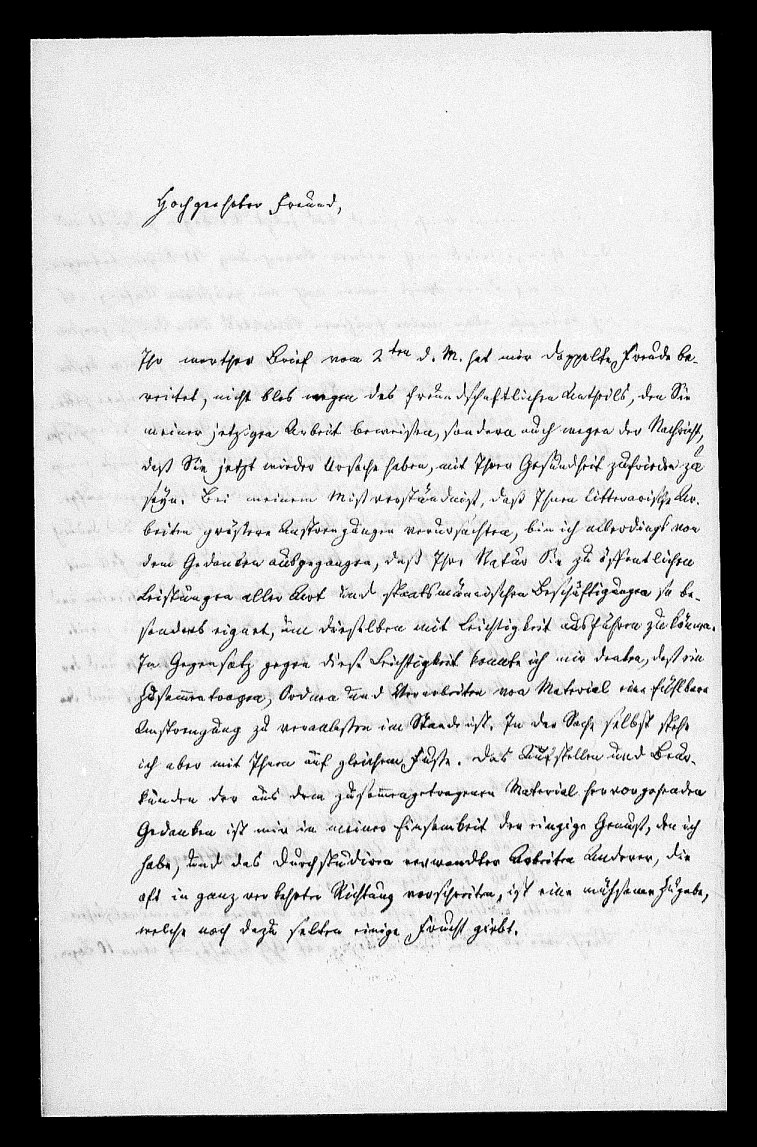 Hochgeehrter Freund,
Ihr werther Brief vom 2ten d. M. hat mir doppelte Freude be-
reitet, nicht blos wegen des freundschaftlichen Antheils, den Sie
meiner jetzigen Arbeit beweisen, sondern auch wegen der Nachricht,
daß Sie jetzt wieder Ursache haben, mit Ihrer Gesundheit zufrieden zu
seyn. Bei meinem Mißverständniß, daß Ihnen litterarische Ar-
beiten größere Anstrengungen verursachten, bin ich allerdings von
dem Gedanken ausgegangen, daß Ihre Natur Sie zu öffentlichen
Leistungen aller Art und staatsmännischen Beschäftigungen so be-
sonders eignet, um dieselben mit Leichtigkeit ausführen zu können.
Im Gegensatz gegen diese Leichtigkeit konnte ich mir denken, daß ein
Zusammentragen, Ordnen und Verarbeiten von Material eine fühlbare
Anstrengung zu veranlassen im Stande ist. In der Sache selbst stehe
ich aber mit Ihnen auf gleichem Fuße. Das Aufstellen und Beur-
kunden der aus dem zusammengetragenen Material hervorgehenden
Gedanken ist mir in meiner Einsamkeit der einzige Genuß, den ich
habe, und das Durchstudiren verwandter Arbeiten Anderer, die
oft in ganz verkehrter Richtung vorschreiten, ist eine mühsame Zugabe,
welche noch dazu selten einige Frucht giebt.